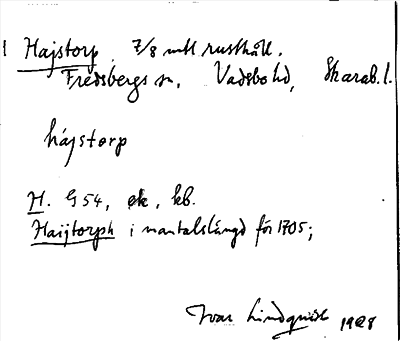 Hajstorp 7/8 mtl rusthåll.
Fredsbergs sn, Vadsbo hd, Skarab. l.
hájstorp
H. G 54, ek, kb.
Haijtorph i mantalslängd för 1705;
Ivar Lindquist 1928